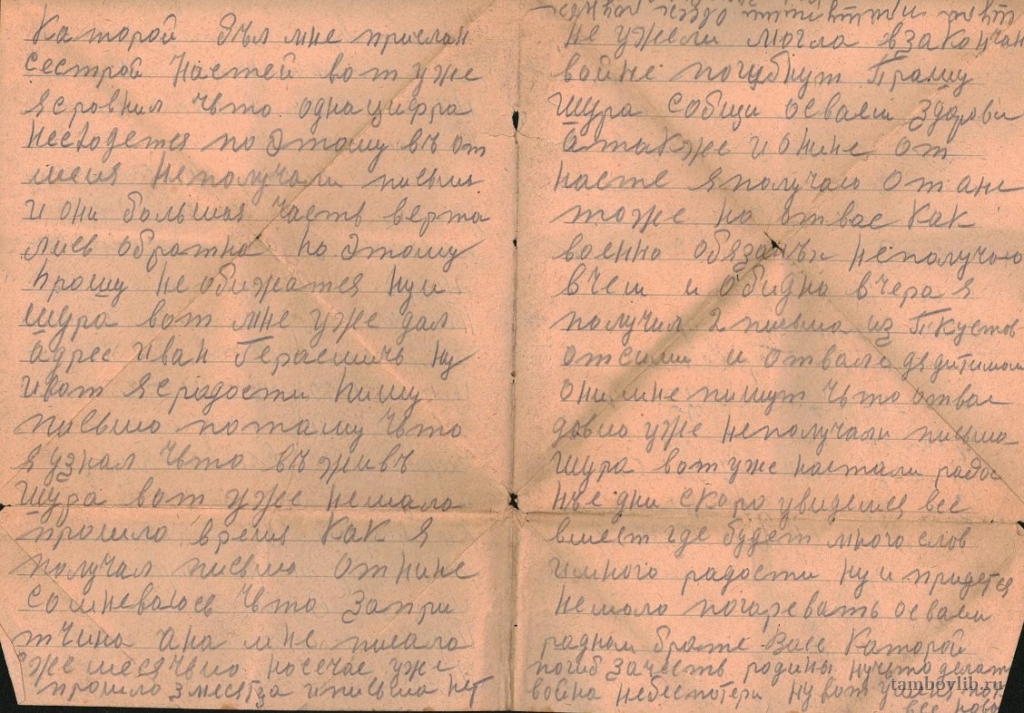 Каторой был мне прислан
сестрой Настей вот уже
я сровнил чьто одна цифра
несходется по этому въ от
меня неполучали письма
и они большая часть верта
лись обратна по этому
прошу необижатся ну и
Шура вот мне уже дал
адрес Иван Герасимичь ну
и вот я срадости пишу
письмо потаму чьто
я узнал чьто въ живъ
Шура вот уже немала
прошло время как я
получал письмо от Нине
сомневаюсь чьто запри
тчина ана мне писала
же месячьно носечас уже
прошло 3 месяца и письма нет
не ужели могла взакончан
войне погибнут Прашу
Шура собщи осваем здорови
а также и онине от
насте я получаю от ане
тоже но отвас как
военно обязанъи неполучаю
вчем и обидна вчера я
получил 2 письма из П кустов
отсими и отвале
они мне пишут чьто отвас
давно уже неполучали письма
Шура вот уже настали радос
нъе дни скоро увидемся все
вмест где будет много слов
и много радости ну и придется
немало погаревать осваем
раднам брате Васе Каторой
погиб зачесть родины ну чьто делать
война небеспотери ну вот
все пова
tambovlib.ru